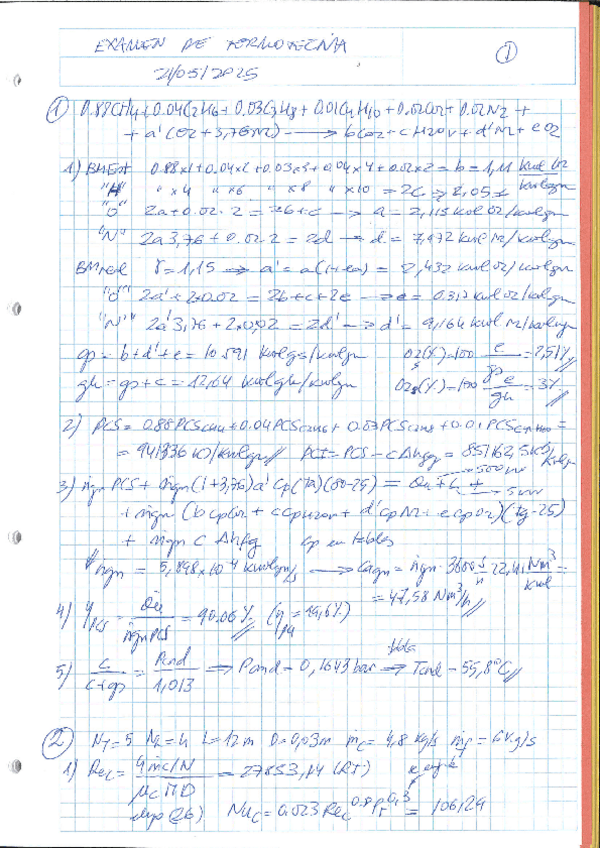 EXAMEN DE TERMOTECNIA
①
21/05/2025
① 0.88CH4+0.04C2H6+0.03C3H8+0.01C4H10+0.02CO2+0.02N2+
+a'(O2+3,76N2) ⟶ bCO2+cH2Ov+d'N2+eO2
"H" " x4 " x6 " x8 " x10 = 2c →
"O" 2a+0.02·2=2b+c → a=2,115 kmol O2/kmolgn
"N" 2a3,76+0.02·2=2d → d=7,972 kmol N2/kmolgn
BMreal γ=1,15 ⟹ a'= = 2,432 kmol O2/kmolgn
"O" 2a'+2x0.02=2b+c+2e → e=0.317 kmol O2/kmolgn
"N" 2a'3,76+2x0,02=2d' → d'=9,164 kmol N2/kmolgn
gp=b+d'+e=10.591 kmolgs/kmolgn O2s(%)=100 e/gp=2,51%
gh=gp+c=12,64 kmolgh/kmolgn O2(%)=100 e/gh=3%
2) PCS=0.88PCSCH4+0.04PCSC2H6+0.03PCSC3H8+0.01PCSC4H10=
=941336 kJ/kmolgn PCI=PCS-cΔhfg=851162,5 kJ/kmolgn
3) ṅgn PCS+ṅgn(1+3,76)a'Cp(ta)(80-25)=Qu+L+
500kW
5kW
+ṅgn(bcpCO2+ccpH2Ov+d'cpN2+ecpO2)(tg-25)
+ṅgn c Δhfg cp en tablas
ṅgn=5,898x10⁻⁴ kmolgn/s ⟶ Cagn=ṅgn·3600 s/h 22,41 Nm³/kmol=
=47,58 Nm³/h
4) ηPCS=Qu/ṅgnPCS=90.06%
5) c/c+gp=Pcond/1,013 ⟹ Pcond=0,1643bar ⟹ Tcond=55,8°C
② NT=5 L=12m D=0,03m ṁc=4,8 kg/s
1) Rec=4ṁc/N/μcΠD=27853,14 (RT)
Nuc=0.023Rec^0.8Pr^0,3=106,29